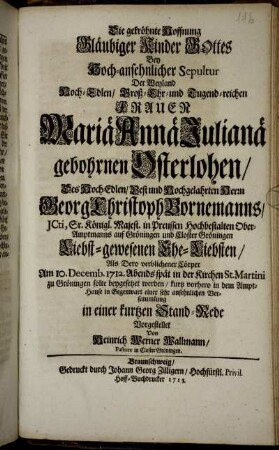 Die gekröhnte Hoffnung
Gläubiger Kinder GOttes
Bey
Hoch-ansehnlicher Sepultur
Der Weyland
Hoch-Edlen/ Groß-Ehr- und Tugend-reichen
FRAUEN
Mariä Annä Julianä
gebohrnen Osterlohen/
Des HochEdlen/ Vest und Hochgelahrten Herrn
Georg Christoph Bornemanns/
JCti, Sr. Königl. Majest. in Preussen Hochbestalten Ober-
Amptmanns auf Gröningen und Closter Gröningen
Liebst-gewesenen Ehe-Liebsten/
Als Dero verblichener Cörper
Am 10. Decemb. 1712. Abends spät in der Kirchen St. Martini
zu Gröningen solte beygesetzet werden/ kurtz vorhero in dem Ampt-
Hause in Gegenwart einer sehr ansehnlichen Ver-
sammlung
in einer kurtzen Stand-Rede
Vorgestellet
Von
Heinrich Werner Wallmann/
Pastore in Closter Gröningen.
Braunschweig/
Gedruckt durch Johann Georg Zilligern/ Hochfürstl. Privil.
Hoff-Buchdrucker 1713.